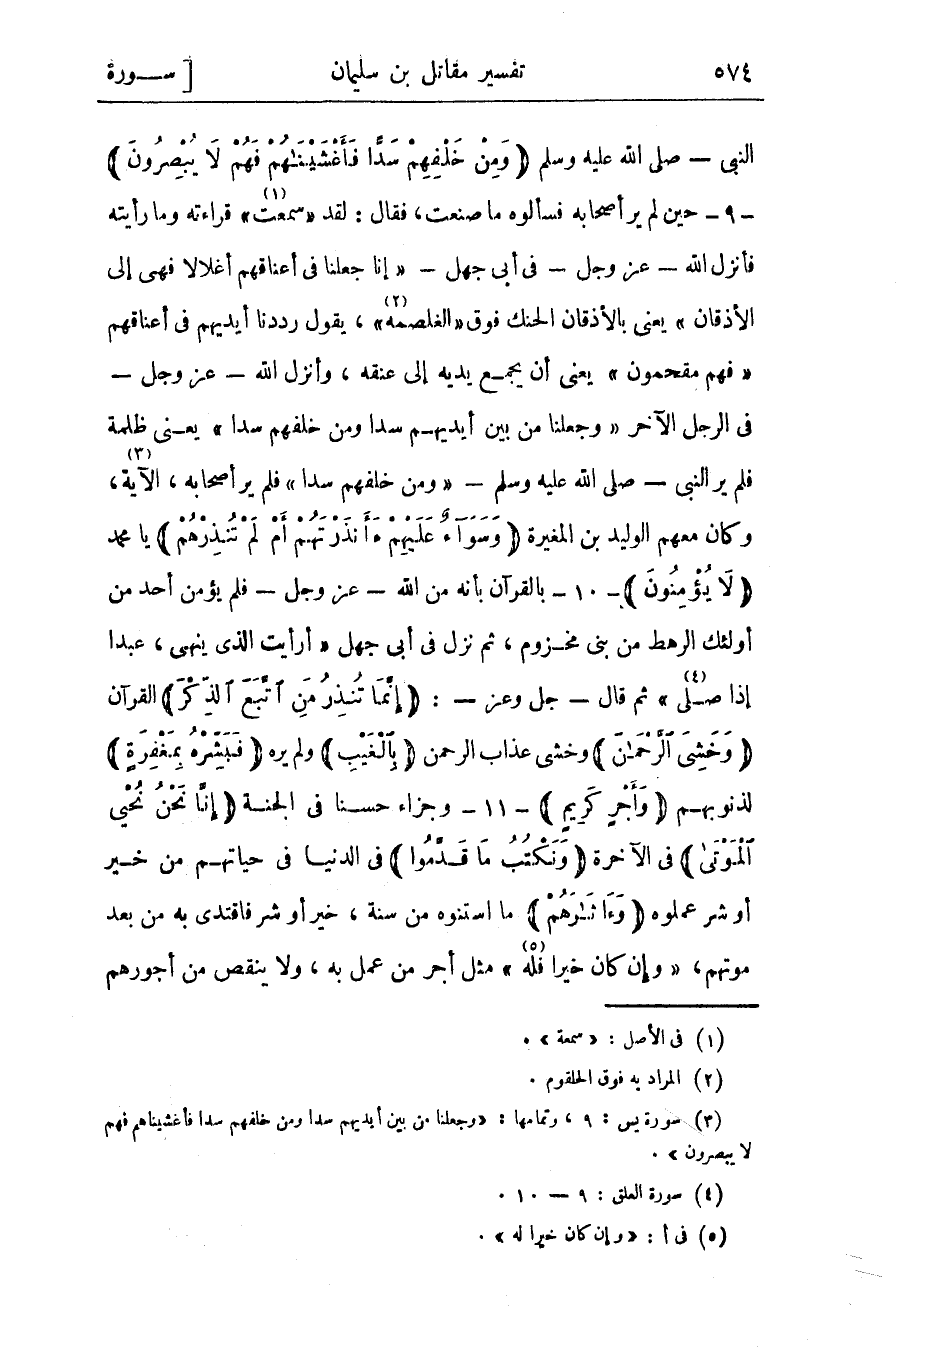 ٥٧٤ تفسير مقاتل بن سليمان [ ســـورة
النبى — صلى الله عليه وسلم ﴿ وَمِنْ خَلْفِهِمْ سَدًّا فَأَغْشَيْنَـٰهُمْ فَهُمْ لَا يُبْصِرُونَ ﴾
- ٩ - حين لم ير أصحابه فسألوه ما صنعت، فقال : لقد «سمعت» (١) قراءته وما رأيته
فأنزل الله — عز وجل — فى أبى جهل — « إنا جعلنا فى أعناقهم أغلالا فهى إلى
الأذقان » يعنى بالأذقان الحنك فوق «الغلصمة» (٢) ، يقول رددنا أيديهم فى أعناقهم
« فهم مقمحون » يعنى أن يجمـع يديه إلى عنقه ، وأنزل الله — عز وجل —
فى الرجل الآخر « وجعلنا من بين أيديهـم سدا ومن خلفهم سدا » يعـنى ظلمة
فلم ير النبى — صلى الله عليه وسلم — « ومن خلفهم سدا » فلم ير أصحابه ، الآية (٣) ،
وكان معهم الوليد بن المغيرة ﴿ وَسَوَآءٌ عَلَيْهِمْ ءَأَنذَرْتَهُمْ أَمْ لَمْ تُنذِرْهُمْ ﴾ يا محمد
﴿ لَا يُؤْمِنُونَ ﴾ - ١٠ - بالقرآن بأنه من الله — عز وجل — فلم يؤمن أحد من
أولئك الرهط من بنى مخـزوم ، ثم نزل فى أبى جهل « أرأيت الذى ينهى ، عبدا
إذا صـلى (٤) » ثم قال — جل وعز — : ﴿ إِنَّمَا تُنذِرُ مَنِ ٱتَّبَعَ ٱلذِّكْرَ ﴾ القرآن
﴿ وَخَشِىَ ٱلرَّحْمَـٰنَ ﴾ وخشى عذاب الرحمن ﴿ بِٱلْغَيْبِ ﴾ ولم يره ﴿ فَبَشِّرْهُ بِمَغْفِرَةٍ ﴾
لذنوبهـم ﴿ وَأَجْرٍ كَرِيمٍ ﴾ - ١١ - وجزاء حسـنا فى الجنـة ﴿ إِنَّا نَحْنُ نُحْىِ
ٱلْمَوْتَىٰ ﴾ فى الآخرة ﴿ وَنَكْتُبُ مَا قَـدَّمُوا ﴾ فى الدنيـا فى حياتهـم من خـير
أو شر عملوه ﴿ وَءَاثَـٰرَهُمْ ﴾ ما استنوه من سنة ، خير أو شر فاقتدى به من بعد
موتهم، « وإن كان خيرا فله (٥) » مثل أجر من عمل به ، ولا ينقص من أجورهم
(١) فى الأصل : « سمعة » .
(٢) المراد به فوق الحلقوم .
(٣) سورة يس : ٩ ، وتمامها : «وجعلنا من بين أيديهم سدا ومن خلفهم سدا فأغشيناهم فهم
لا يبصرون » .
(٤) سورة العلق : ٩ — ١٠ .
(٥) فى أ : « وإن كان خيرا له » .